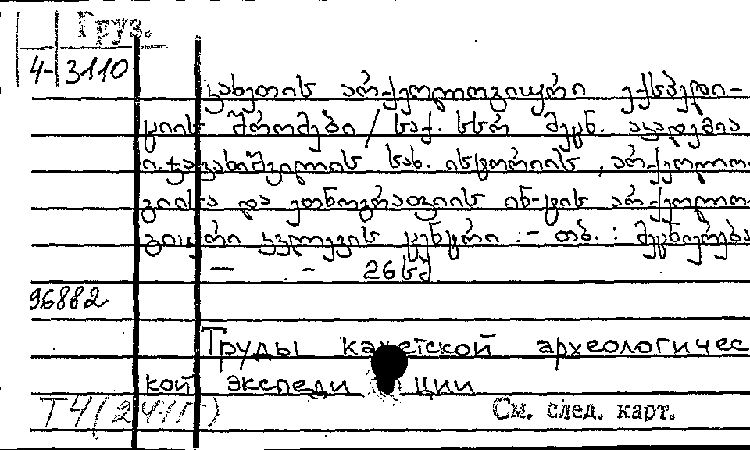 Груз.
4-3110
კახეთის არქეოლოგიური ექსპედი-
ციის შრომები / საქ. სსრ მეცნ. აკადემია
ი. ჯავახიშვილის სახ. ისტორიის, არქეოლო-
გიისა და ეთნოგრაფიის ინ-ტის არქეოლო-
გიური კვლევის ცენტრი. - თბ.: მეცნიერება
— - 26სმ
96882
Труды кахетской археологичес
кой экспеди ции
Т4(2411)
См. след. карт.